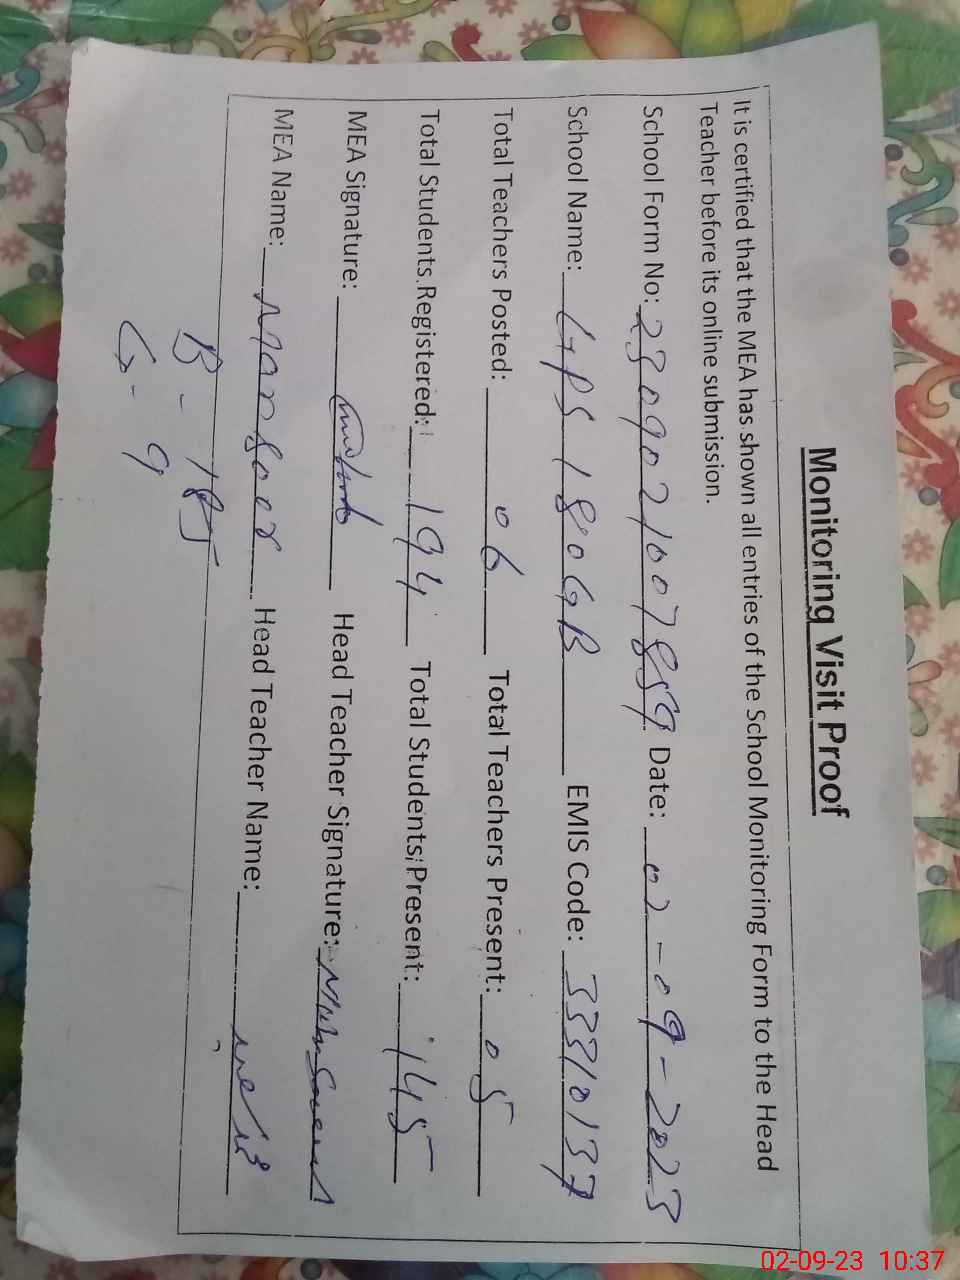 Monitoring Visit Proof
It is certified that the MEA has shown all entries of the School Monitoring Form to the Head
Teacher before its online submission.
School Form No: 23090210078859 Date: 02-09-2023
School Name: GPS 180GB EMIS Code: 33310137
Total Teachers Posted: 06 Total Teachers Present: 05
Total Students Registered: 194 Total Students Present: 145
MEA Signature: Head Teacher Signature:
MEA Name: Mansoor Head Teacher Name:
B - 185
G - 9
02-09-23 10:37